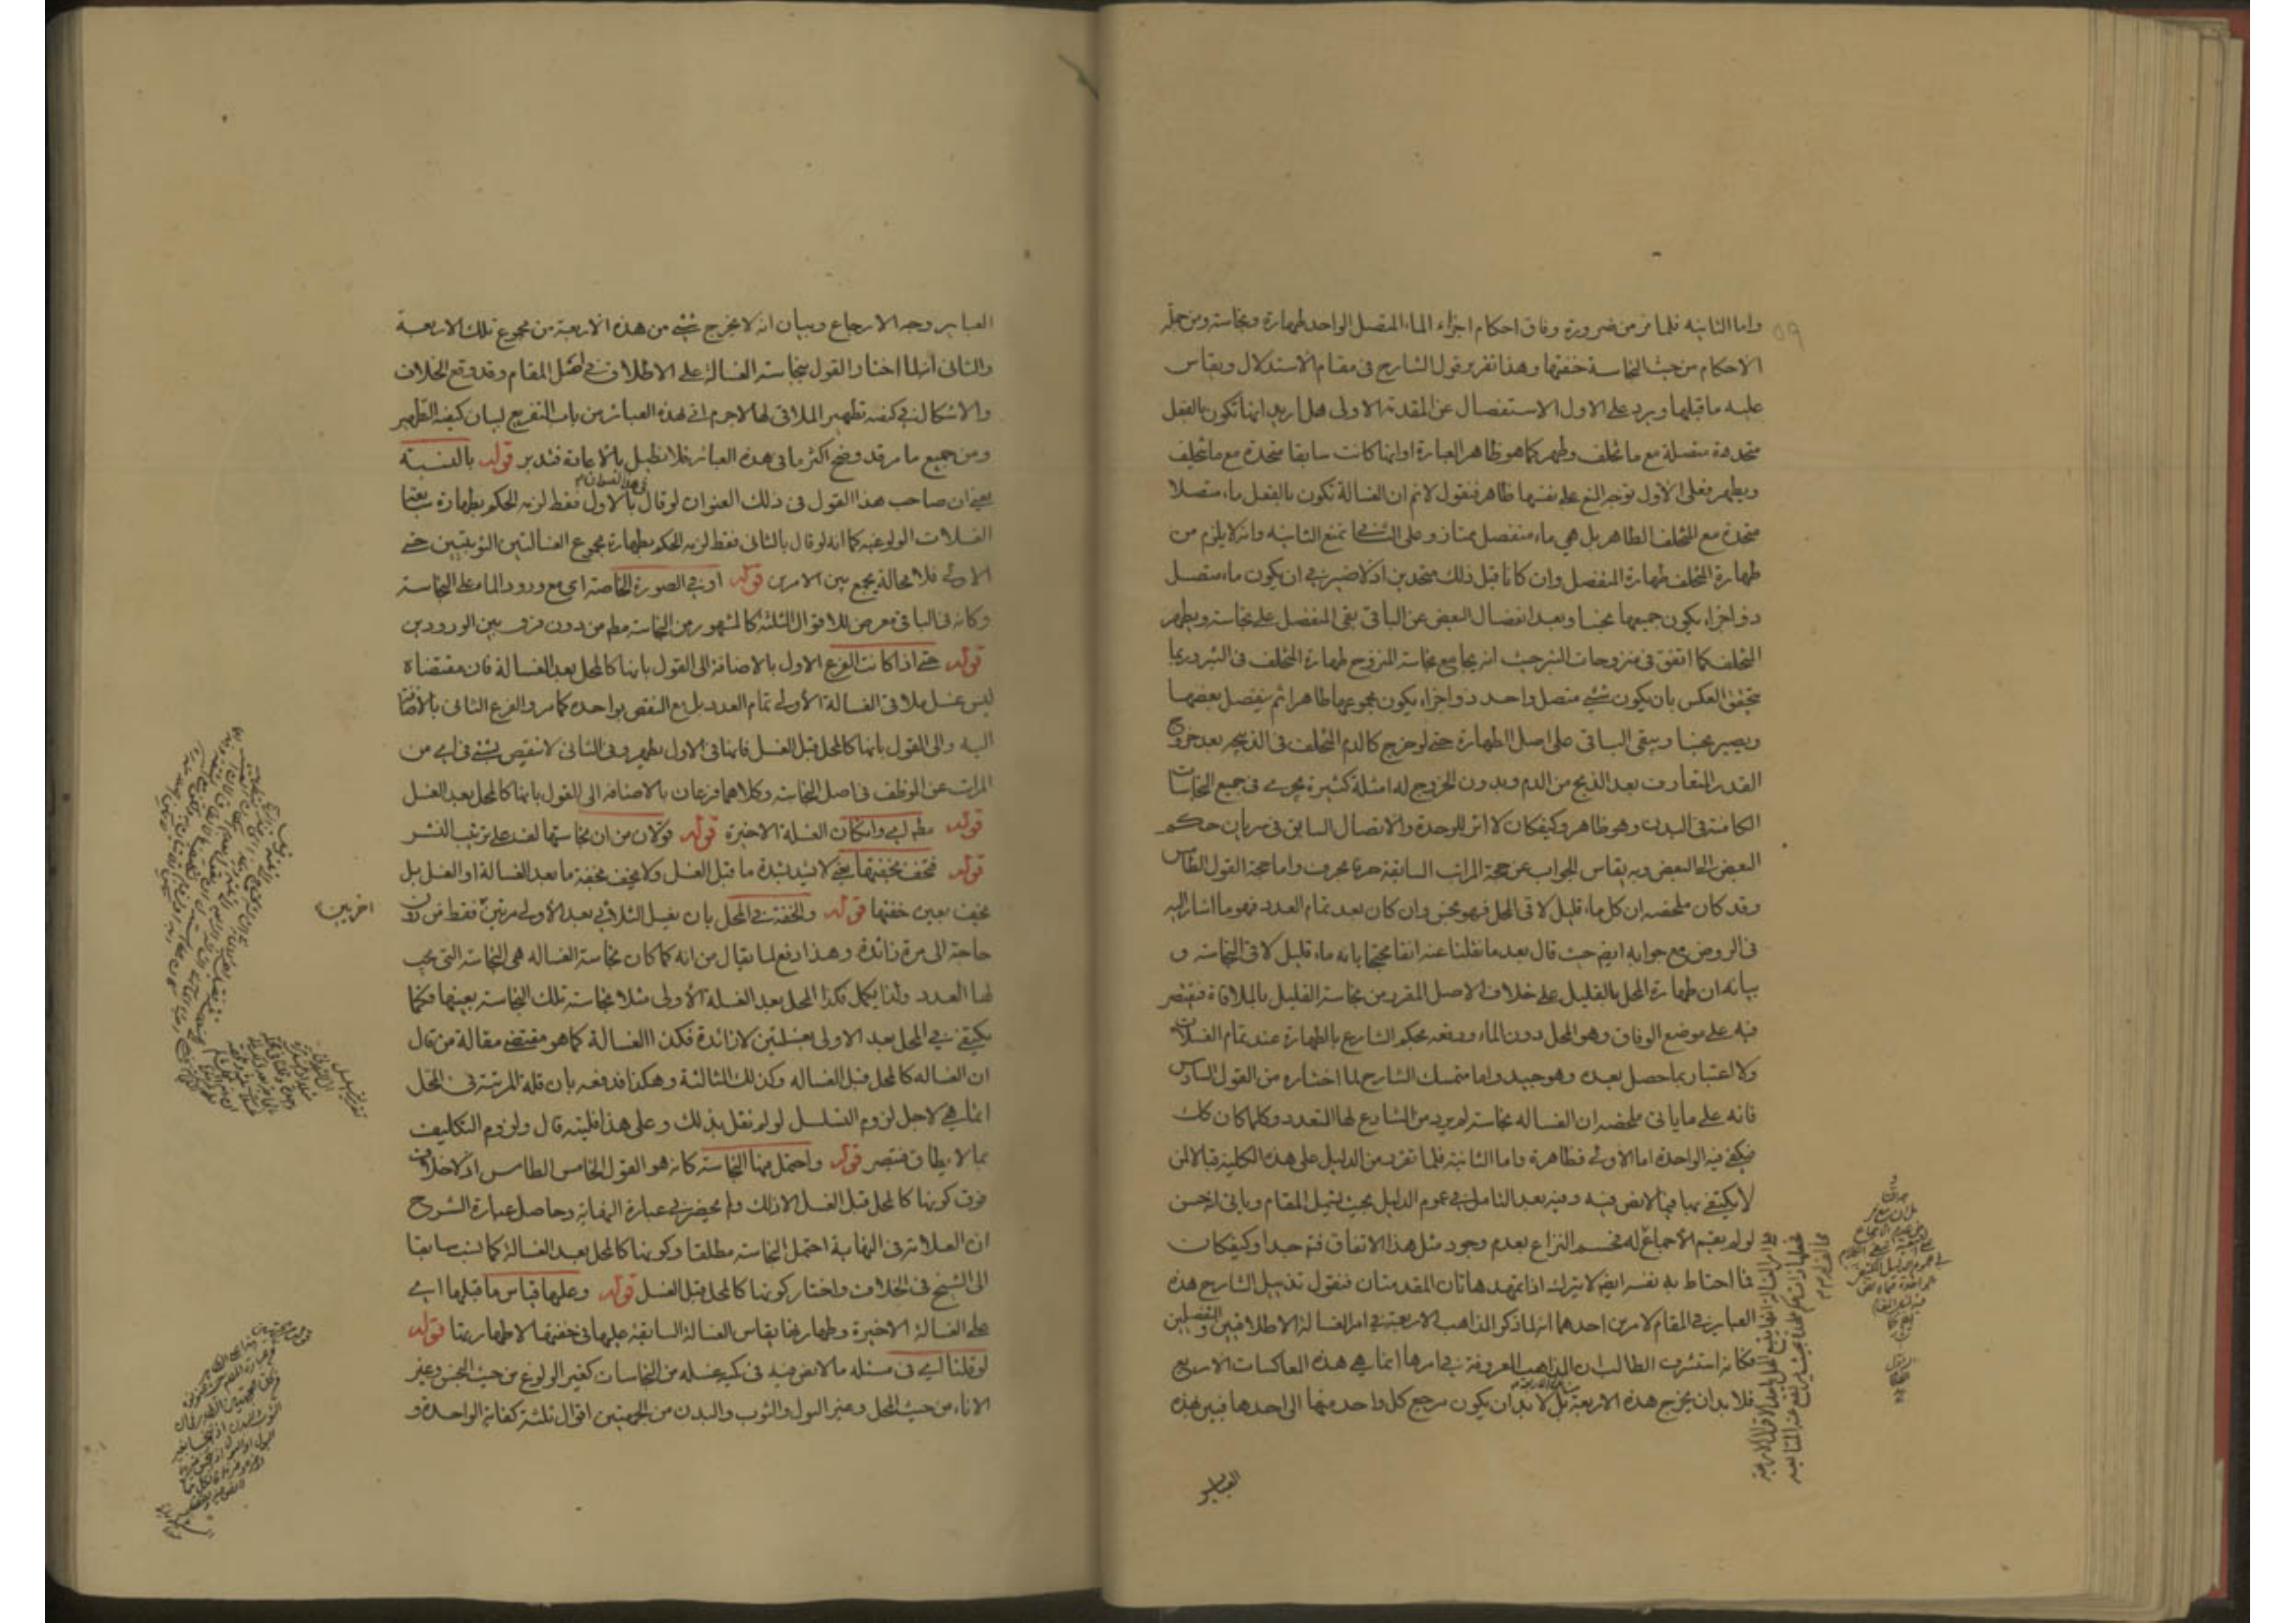 واما الثانیه فلما مر من ضرورة وفاق احکام اجزاء الماء المتصل الواحد طهارة ونجاسة ومن جملة
الاحکام من حیث النجاسة خفتها وهذا تقریر قول الشارح فی مقام الاستدلال ویقاس
علیه ما قبلها ویرد علی الاول الاستفصال عن المقدمة الاولی هل ارید انها تکون بالفعل
متحدة متصلة مع ما تخلف وطهر کما هو ظاهر العبارة او انها کانت سابقا متحدة مع ما تخلف
ویطهر فعلی الاول توجه المنع علی نفسها ظاهر فنقول لا نم ان الغسالة تکون بالفعل ماء متصلا
متحدة مع المتخلف الطاهر بل هی ماء منفصل ممتاز وعلی الثانی نمنع الثانیه وانه لا یلزم من
طهارة المتخلف طهارة المنفصل وان کانا قبل ذلک متحدین اذ لا ضیر فی ان یکون ماء متصل
ذو اجزاء یکون جمیعها نجسا وبعد انفصال البعض عن الباقی بقی المنفصل علی نجاسته ویطهر
المتخلف کما اتفق فی منزوحات البئر حیث انه یجامع نجاسة المنزوح طهارة المتخلف فی البئر وربما
یتحقق العکس بان یکون شیء متصل واحد ذو اجزاء یکون مجموعها طاهرا ثم ینفصل بعضها
ویصیر نجسا ویبقی الباقی علی اصل الطهارة حتی لو خرج کالدم المتخلف فی الذبیحة بعد خروج
القدر المتعارف بعد الذبح من الدم وبدون الخروج له امثلة کثیرة یجری فی جمیع النجاسات
الکامنة فی البدن وهو ظاهر وکیفکان لا اثر للوحدة والاتصال السابق فی سریان حکم
البعض الی البعض وبه یقاس الجواب عن حجة المراتب السابقة حرفا بحرف واما حجة القول الخامس
وقد کان ملخصه ان کل ماء قلیل لاقی المحل فهو نجس وان کان بعد تمام العدد فهو ما اشار الیه
فی الروض مع جوابه ایضا حیث قال بعد ما نقلنا عنه انفا محتجا بانه ماء قلیل لاقی النجاسة و
بیانه ان طهارة المحل بالقلیل علی خلاف الاصل المقرر من نجاسة القلیل بالملاقاة فیقتصر
فیه علی موضع الوفاق وهو المحل دون الماء ودفعه بحکم الشارع بالطهارة عند تمام الغسلات
ولا اعتبار بما حصل بعده وهو جید واما متمسک الشارح لما اختاره من القول السادس
فانه علی ما یاتی ملخصه ان الغساله نجاسة لم یرد من الشارع لها التعدد وکلما کان کک
فیکفی فیه الواحدة اما الاولی فظاهرة واما الثانیة فلما تقرر من الدلیل علی هذه الکلیة قبالا لمن
لا یکتفی بها فیما لا نص فیه وفیه بعد التامل فی عموم الدلیل بحیث یشمل المقام ویاتی انه حسن
لو لم یقم الاجماع له فحسم النزاع بعدم وجود مثل هذا الاتفاق فتم جدا وکیفکان
فما احتاط به نفسه ایضا لا یترک اذا تمهد هاتان المقدمتان فنقول تذییل الشارح هذه
العبایر فی المقام لامرین احدهما انه لما ذکر المذاهب الاربعة فی امر الغسالة الاطلاقیین والتفصیلین
فکانه استشرف الطالب ان المذاهب المعروفة فی امرها انما هی هذه العاکسات الاربع
فلا بد ان یخرج هذه الاربعة بل لا بد ان یکون مرجع کل واحد منها الی احدها فبین بهذه
العبایر
العبایر وجه الارجاع وبیان انه لا یخرج شیء من هذه الاربعة من مجموع تلک الاربعة
والثانی انه لما اختار القول بنجاسة الغسالة علی الاطلاق فی اصل المقام وقد وقع الخلاف
والاشکال فی کیفیة تطهیر الملاقی لها لاجرم اتی بهذه العبائر من باب التفریع لبیان کیفیة التطهیر
ومن جمیع ما مر قد وضح اکثر ما فی هذه العبائر فلا نطیل بالاعادة فتدبر قوله بالنسبة
یعنی ان صاحب هذا القول فی ذلک العنوان لو قال بالاول فقط لزمه الحکم بطهارة سابعة
الغسلات الولوغیه کما انه لو قال بالثانی فقط لزمه الحکم بطهارة مجموع الغسالتین الثوبیتین حتی
الاولی فلا محالة یجمع بین الامرین قوله او فی الصورة الخاصة ای مع ورود الماء علی النجاسة
وکانه فی الباقی معرض للاقوال الثلثة کالمشهور من النجاسة مطم من دون فرق بین الورودین
قوله حتی اذا کانت الفرع الاول بالاضافة الی القول بانها کالمحل بعد الغسالة فان مقتضاه
لیس غسل ملاقی الغسالة الاولی تمام العدد بل مع النقص بواحدة کما مر والفرع الثانی بالاضافة
الیه والی القول بانها کالمحل قبل الغسل فانها فی الاول یطهر وفی الثانی لا ینقص بشیء فی ای من
المرات عن الموظف فی اصل النجاسة وکلاهما فرعان بالاضافه الی القول بانها کالمحل بعد الغسل
قوله مطم ای وان کان الغسلة الاخیرة قوله قولان من ان نجاستها لف علی ترتیب النشر
قوله فتخف بخفتها یعنی لا یشتد بشدة ما قبل الغسل ولا یخف بخفة ما بعد الغسالة او الغسل بل
یخف بعین خفتها قوله والخفة فی المحل بان یغسل الثلاثی بعد الاولی مرتین فقط من دون
حاجة الی مرة زائدة وهذا دفع لما یقال من انه کما کان نجاسة الغساله هی النجاسة التی یجب
لها العدد ولذا یکمل فکذا المحل بعد الغسلة الاولی مثلا نجاسته تلک النجاسة بعینها فکما
یکتفی فی المحل بعد الاولی بغسلتین لا زائدة فکذا الغسالة کما هو مقتضی مقالة من قال
ان الغساله کالمحل قبل الغساله وکذلک الثالثة وهکذا فدفعه بان قلة المرتبة فی المحل
انما هی لاجل لزوم التسلسل لو لم نقل بذلک وعلی هذا فلیته قال ولزوم التکلیف
بما لا یطاق فتبصر قوله واحتمل فیها النجاسة کانه هو القول الخامس اذ لا خلاف
فوق کونها کالمحل قبل الغسل الا ذلک ولم یحضرنی عبارة النهایة وحاصل عبارة الشرح
ان العلامة فی النهایة احتمل النجاسة مطلقا وکونها کالمحل بعد الغسالة کما نسب سابقا
الی الشیخ فی الخلاف واختار کونها کالمحل قبل الغسل قوله وعلیها قیاس ما قبلها ای
علی الغسالة الاخیرة وطهارتها یقاس الغسالة السابقة علیها فی خفتها لا طهارتها قوله
لو قلنا ای فی مسئله ما لا نص فیه فی کمیة غسله من النجاسات کغیر الولوغ من حیث النجس وغیر
الاناء من حیث المحل وغیر البول والثوب والبدن من الجهتین اقوال ثلثة کفایة الواحدة و
اخریین